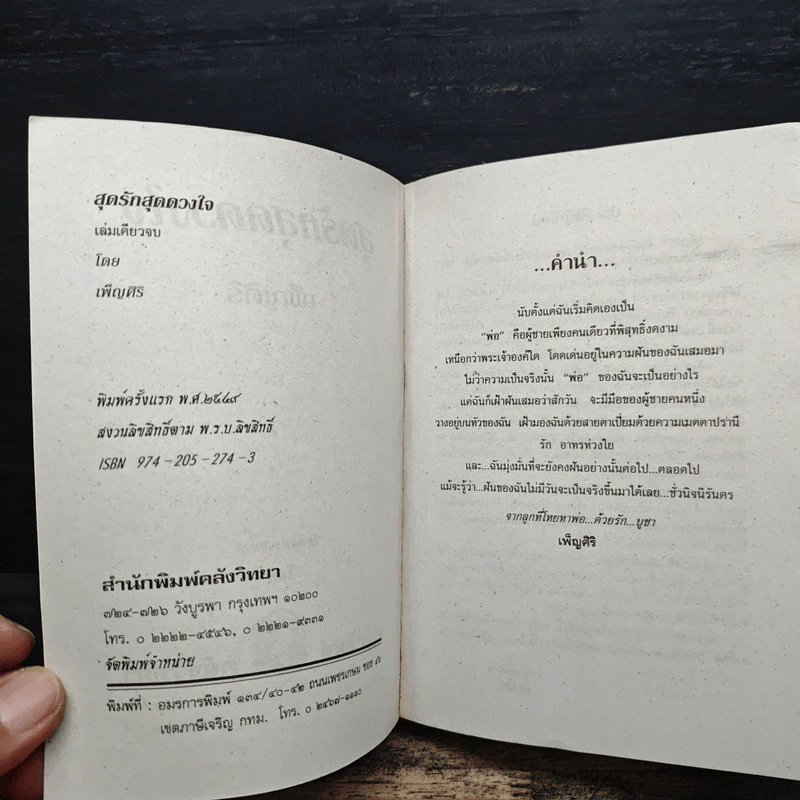 สุดรักสุดดวงใจ
เล่มเดียวจบ
โดย
เพ็ญศิริ
พิมพ์ครั้งแรก พ.ศ.๒๕๔๙
สงวนลิขสิทธิ์ตาม พ.ร.บ.ลิขสิทธิ์
ISBN 974-205-274-3
สำนักพิมพ์คลังวิทยา
๗๒๔-๗๒๖ วังบูรพา กรุงเทพฯ ๑๐๒๐๐
โทร. ๐ ๒๒๒๒-๔๕๔๖, ๐ ๒๒๒๑-๙๓๓๑
จัดพิมพ์จำหน่าย
พิมพ์ที่ : อมรการพิมพ์ ๑๓๔/๔๐-๔๒ ถนนเพชรเกษม ซอย
เขตภาษีเจริญ กทม. โทร. ๐ ๒๔๖๗-๑๑๑๐
...คำนำ...
นับตั้งแต่ฉันเริ่มคิดเองเป็น
"พ่อ" คือผู้ชายเพียงคนเดียวที่พิสุทธิ์งดงาม
เหนือกว่าพระเจ้าองค์ใด โดดเด่นอยู่ในความฝันของฉันเสมอมา
ไม่ว่าความเป็นจริงนั้น "พ่อ" ของฉันจะเป็นอย่างไร
แต่ฉันก็เฝ้าฝันเสมอว่าสักวัน จะมีมือของผู้ชายคนหนึ่ง
วางอยู่บนหัวของฉัน เฝ้ามองฉันด้วยสายตาเปี่ยมด้วยความเมตตาปรานี
รัก อาทรห่วงใย
และ...ฉันมุ่งมั่นที่จะยังคงฝันอย่างนั้นต่อไป...ตลอดไป
แม้จะรู้ว่า...ฝันของฉันไม่มีวันจะเป็นจริงขึ้นมาได้เลย...ชั่วนิจนิรันดร
จากลูกที่โหยหาพ่อ...ด้วยรัก...บูชา
เพ็ญศิริ